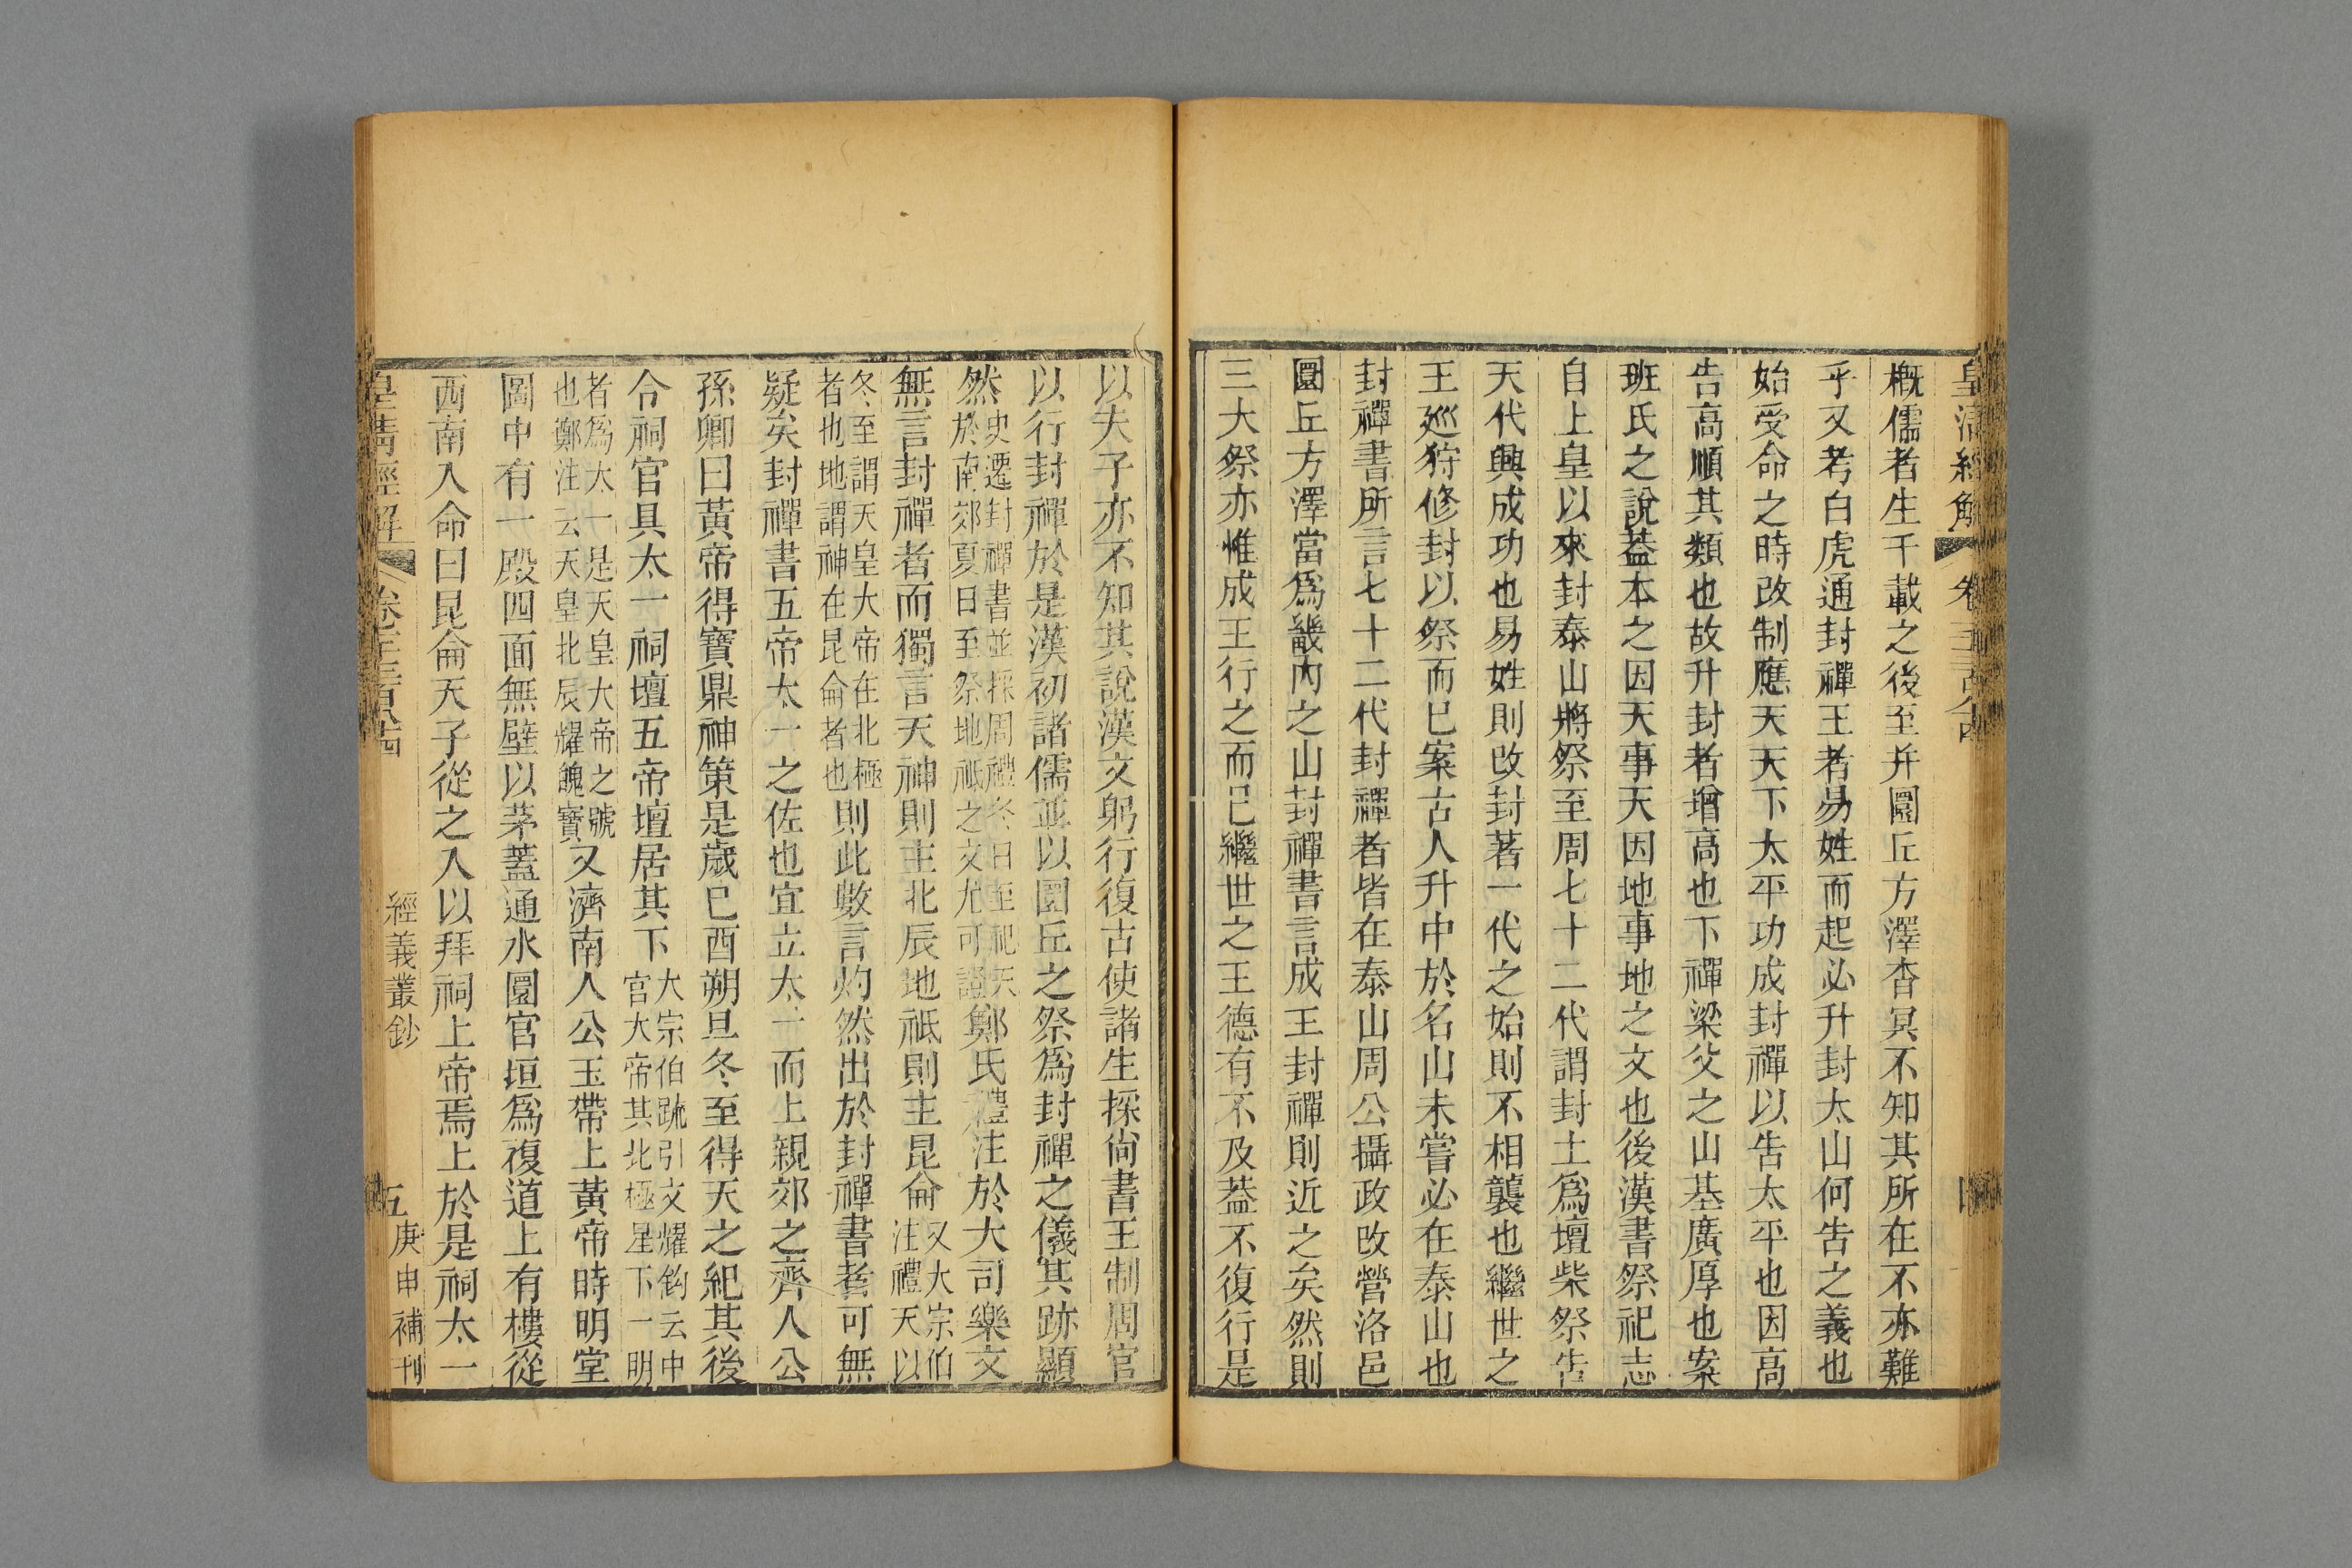 皇清經解
卷
槪儒者生千載之後至幷圜丘方澤杳冥不知其所在不亦難
乎又考白虎通封禪王者易姓而起必升封太山何告之義也
始受命之時改制應天天下太平功成封禪以告太平也因高
告高順其類也故升封者增高也下禪梁父之山基廣厚也案
班氏之說葢本之因天事天因地事地之文也後漢書祭祀志
自上皇以來封泰山將祭至周七十二代謂封土爲壇柴祭告
天代興成功也易姓則改封著一代之始則不相襲也繼世之
王巡狩修封以祭而已案古人升中於名山未嘗必在泰山也
封禪書所言七十二代封禪者皆在泰山周公攝政改營洛邑
圜丘方澤當爲畿內之山封禪書言成王封禪則近之矣然則
三大祭亦惟成王行之而已繼世之王德有不及葢不復行是
以夫子亦不知其說漢文躬行復古使諸生採尙書王制周官
以行封禪於是漢初諸儒並以圜丘之祭爲封禪之儀其跡顯
然史遷封禪書並採周禮冬日至祀天於南郊夏日至祭地祇之文尤可證鄭氏禮注於大司樂文
無言封禪者而獨言天神則主北辰地祇則主昆侖又大宗伯注禮天以
冬至謂天皇大帝在北極者也地謂神在昆侖者也則此數言灼然出於封禪書者可無
疑矣封禪書五帝太一之佐也宜立太一而上親郊之齊人公
孫卿曰黃帝得寶鼎神策是歲已酉朔旦冬至得天之紀其後
合祠官具太一祠壇五帝壇居其下大宗伯疏引文耀鉤云中官大帝其北極星下一明
者爲太一是天皇大帝之號也鄭注云天皇北辰耀魄寶又濟南人公玉帶上黃帝時明堂
圖中有一殿四面無壁以茅蓋通水圜官垣爲復道上有樓從
西南入命曰昆侖天子從之入以拜祠上帝焉上於是祠太一
皇清經解
卷
經義叢鈔
五
庚申補刊